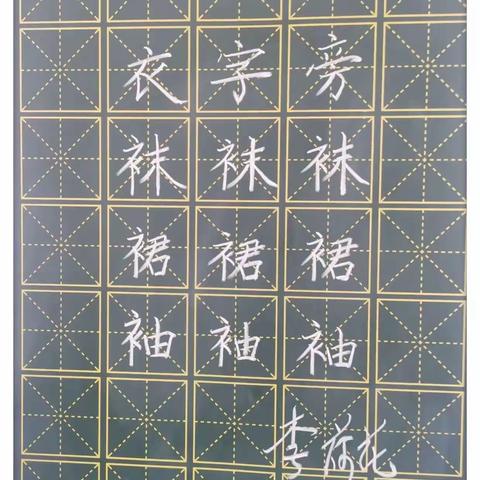 衣字旁
袜袜袜
裙裙裙
袖袖袖
李荷花